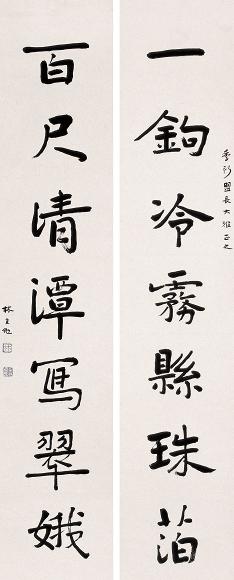 季新盟長大雅正之
一鉤冷霧縣珠箔
百尺清潭寫翠娥
林直勉